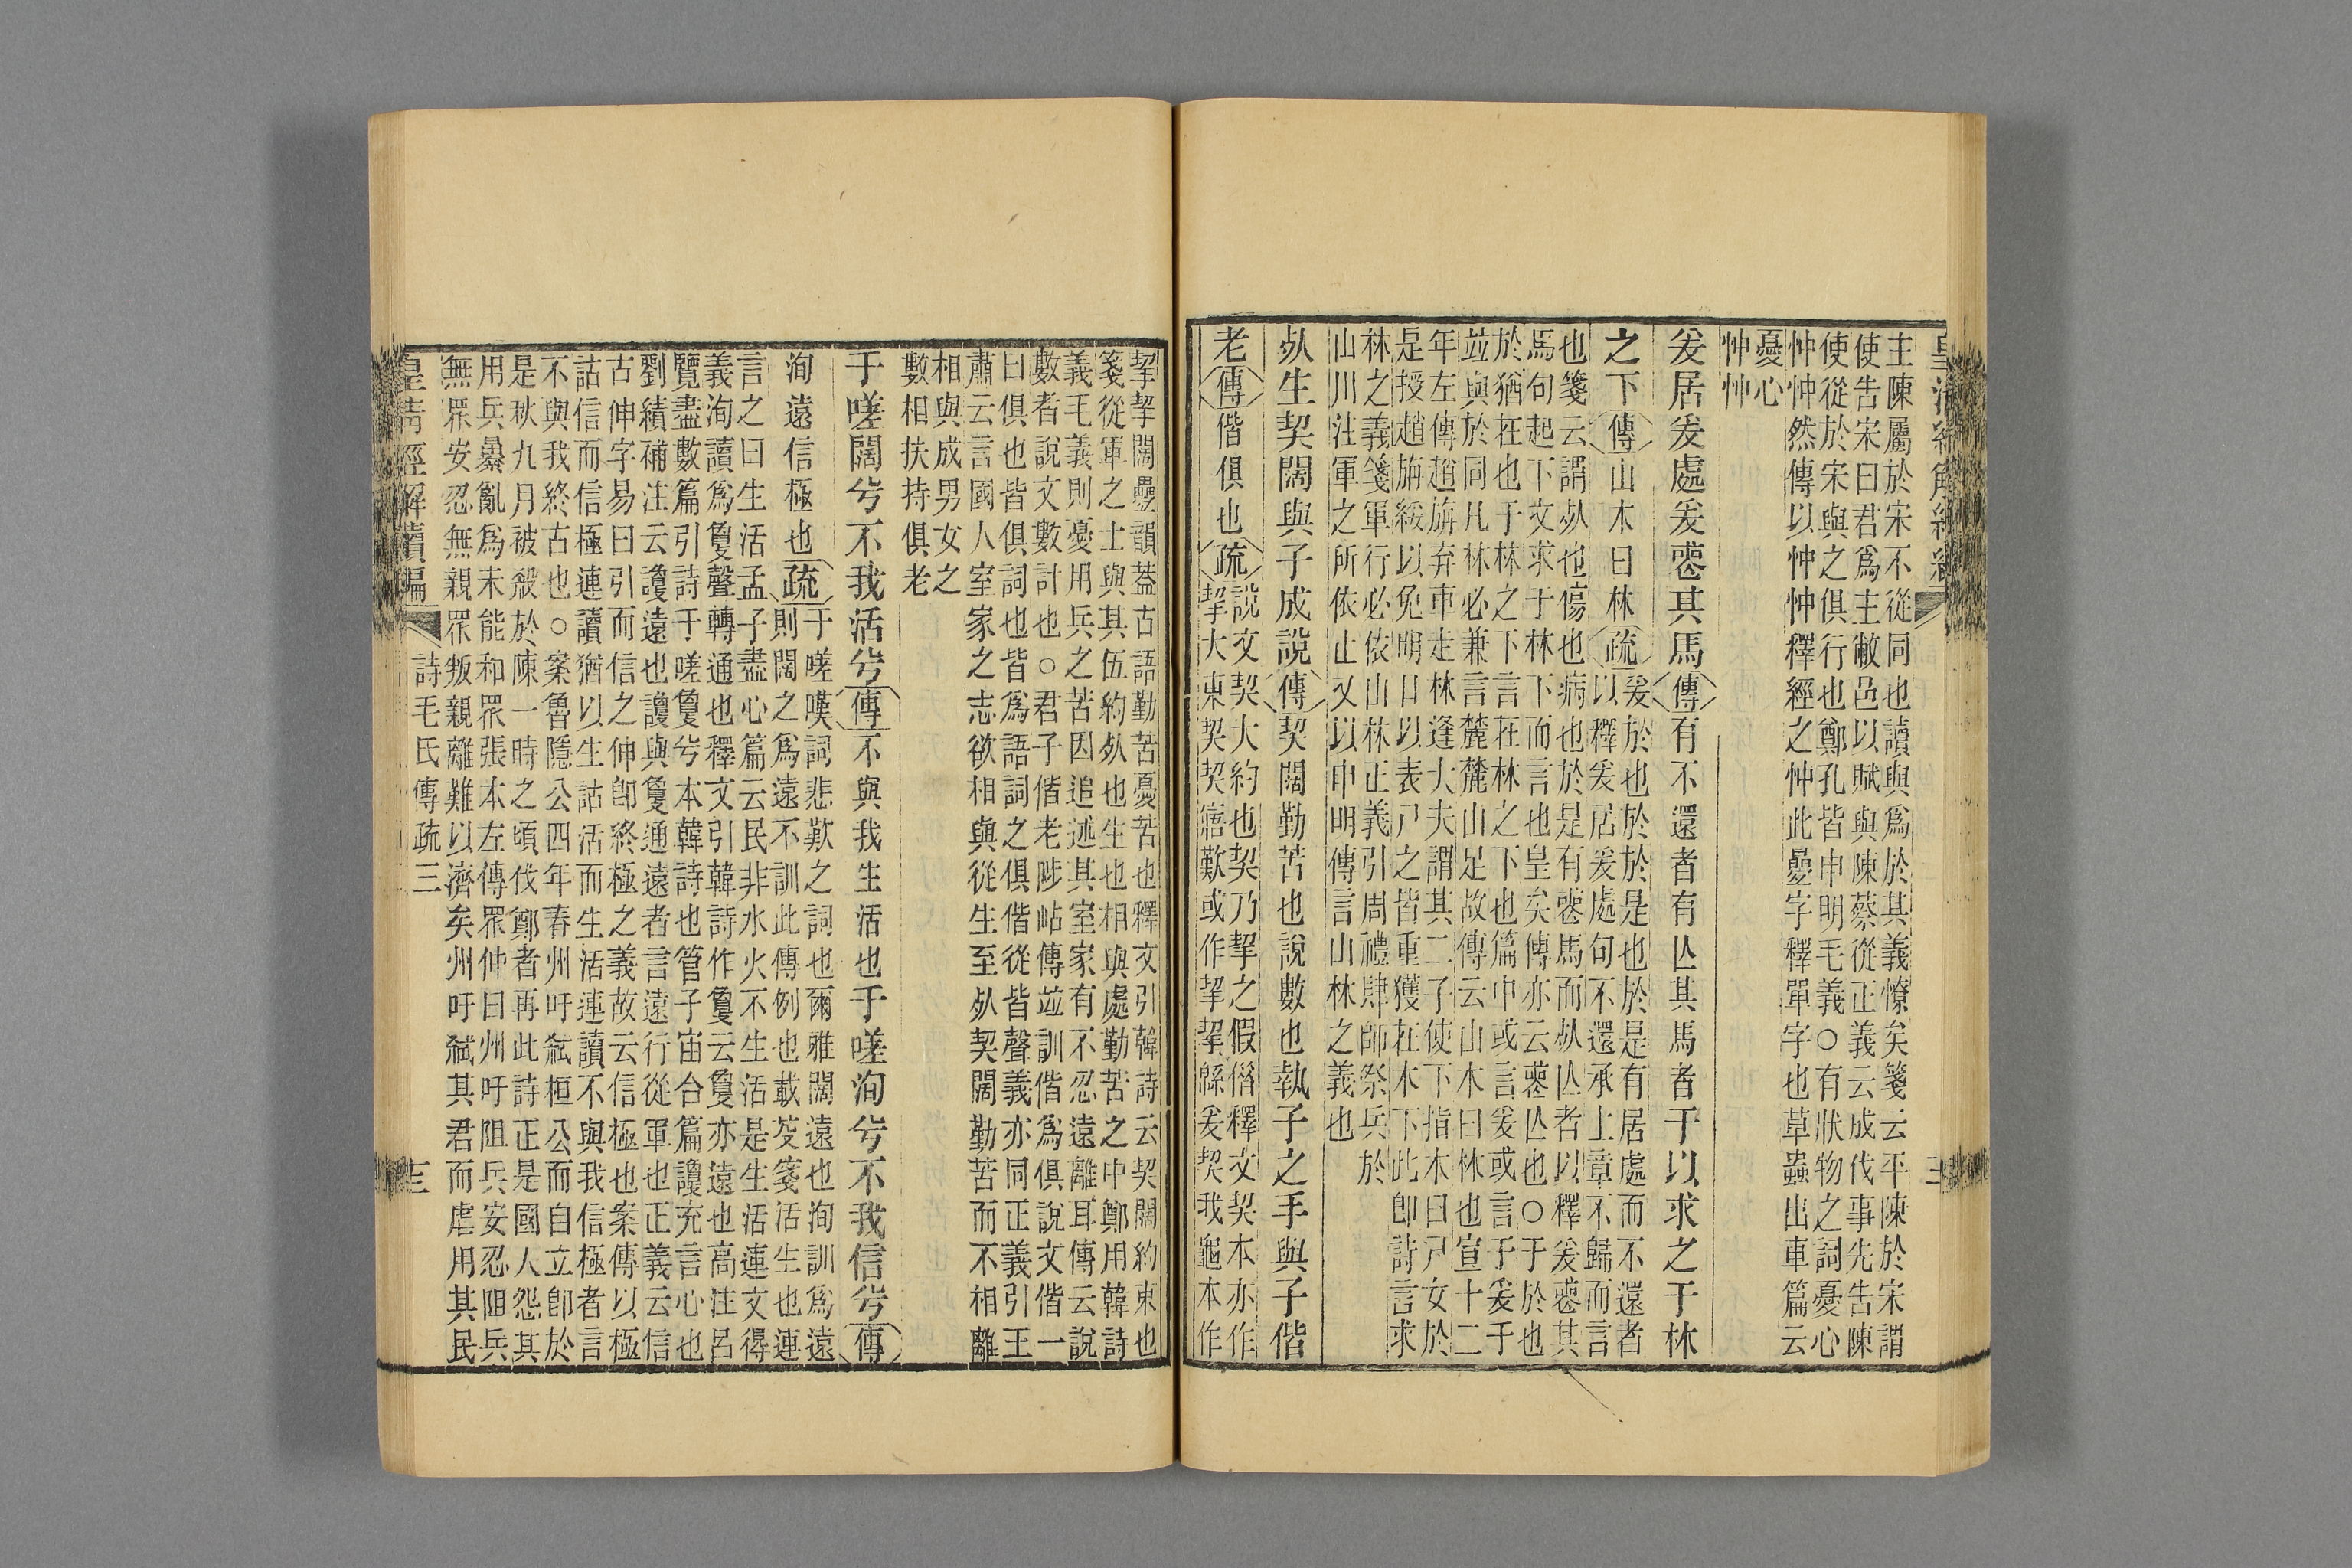 主陳屬於宋不從同也讀與爲於其義憭矣箋云平陳於宋謂
使告宋曰君爲主敝邑以賦與陳蔡從正義云成伐事先告陳
使從於宋與之俱行也鄭孔皆申明毛義○有狀物之詞憂心
忡忡然傳以忡忡釋經之忡此㬪字釋單字也草蟲出車篇云
憂心
忡忡
爰居爰處爰喪其馬傳有不還者有亾其馬者于以求之于林
之下傳山木曰林疏
爰於也於於是也於是有居處而不還者
以釋爰居爰處句不還承上章不歸而言
也箋云謂㱙也傷也病也於是有喪馬而㱙亾者以釋爰喪其
馬句起下文求于林下而言也皇矣傳亦云喪亾也○于於也
於猶在也于林之下言在林之下也篇中或言爰或言于爰于
竝與於同凡林必兼言麓麓山足故傳云山木曰林也宣十二
年左傳趙旃弃車走林逢大夫謂其二子使下指木曰尸女於
是授趙旃綏以免明日以表尸之皆重獲在木下此卽詩言求
林之義箋軍行必依山林正義引周禮肆師祭兵於
山川注軍之所依止又以申明傳言山林之義也
㱙生契闊與子成說傳契闊勤苦也說數也執子之手與子偕
老傳偕俱也疏
說文契大約也契乃挈之假僭釋文契本亦作
挈大東契契寤歎或作挈挈緜爰契我龜本作
挈挈闊疊韻葢古語勤苦憂苦也釋文引韓詩云契闊約束也
箋從軍之士與其伍約㱙也生也相與處勤苦之中鄭用韓詩
義毛義則憂用兵之苦因追述其室家有不忍遠離耳傳云說
數者說文數計也○君子偕老陟岵傳竝訓偕爲俱說文偕一
曰俱也皆俱詞也皆爲語詞之俱偕從皆聲義亦同正義引王
肅云言國人室家之志欲相與從生至㱙契闊勤苦而不相離
相與成男女之
數相扶持俱老
于嗟闊兮不我活兮傳不與我生活也于嗟洵兮不我信兮傳
洵遠信極也疏
于嗟嘆詞悲歎之詞也爾雅闊遠也洵訓爲遠
則闊之爲遠不訓此傳例也載芟箋活生也連
言之曰生活孟子盡心篇云民非水火不生活是生活連文得
義洵讀爲敻聲轉通也釋文引韓詩作敻云敻亦遠也高注呂
覽盡數篇引詩于嗟敻兮本韓詩也管子宙合篇讂充言心也
劉績補注云讂遠也讂與敻通遠者言遠行從軍也正義云信
古伸字易曰引而信之伸卽終極之義故云信極也案傳以極
詁信而信極連讀猶以生詁活而生活連讀不與我信極者言
不與我終古也○案魯隱公四年春州吁弑桓公而自立卽於
是秋九月被殺於陳一時之頃伐鄭者再此詩正是國人怨其
用兵㬥亂爲未能和眾張本左傳眾仲曰州吁阻兵安忍阻兵
無眾安忍無親眾叛親離難以濟矣州吁弑其君而虐用其民
皇淸經解續編 詩毛氏傳疏三